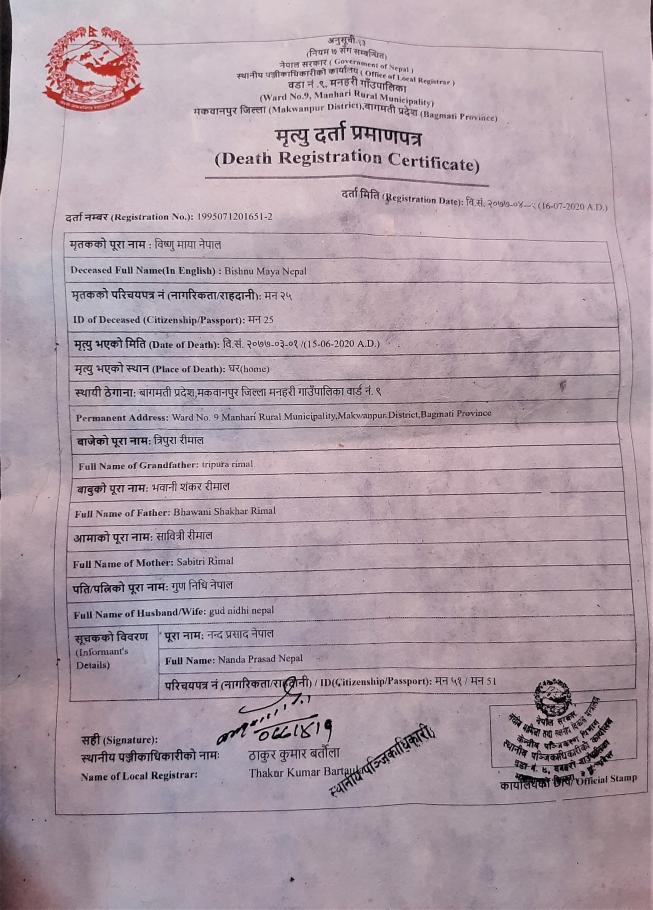 अनुसूची-१३
(नियम ७ सँग सम्बन्धित)
नेपाल सरकार (Government of Nepal)
स्थानीय पञ्जीकाधिकारीको कार्यालय (Office of Local Registrar)
वडा नं .९, मनहरी गाउँपालिका
(Ward No.9, Manhari Rural Municipality)
मकवानपुर जिल्ला (Makwanpur District),बागमती प्रदेश (Bagmati Province)
मृत्यु दर्ता प्रमाणपत्र
(Death Registration Certificate)
दर्ता मिति (Registration Date): वि.सं. २०७७-०४- (16-07-2020 A.D.)
दर्ता नम्बर (Registration No.): 1995071201651-2
मृतकको पूरा नाम : विष्णु माया नेपाल
Deceased Full Name(In English) : Bishnu Maya Nepal
मृतकको परिचयपत्र नं (नागरिकता/राहदानी): मन २५
ID of Deceased (Citizenship/Passport): मन 25
मृत्यु भएको मिति (Date of Death): वि.सं. २०७७-०३-०१ /(15-06-2020 A.D.)
मृत्यु भएको स्थान (Place of Death): घर(home)
स्थायी ठेगाना: बागमती प्रदेश,मकवानपुर जिल्ला मनहरी गाउँपालिका वार्ड नं. ९
Permanent Address: Ward No. 9 Manhari Rural Municipality,Makwanpur District,Bagmati Province
बाजेको पूरा नाम: त्रिपुरा रीमाल
Full Name of Grandfather: tripura rimal
बाबुको पूरा नाम: भवानी शंकर रीमाल
Full Name of Father: Bhawani Shakhar Rimal
आमाको पूरा नाम: सावित्री रीमाल
Full Name of Mother: Sabitri Rimal
पति/पत्निको पूरा नाम: गुण निधि नेपाल
Full Name of Husband/Wife: gud nidhi nepal
सूचकको विवरण
(Informant's
Details)
पूरा नाम: नन्द प्रसाद नेपाल
Full Name: Nanda Prasad Nepal
परिचयपत्र नं (नागरिकता/राहदानी) / ID(Citizenship/Passport): मन ५१ / मन 51
सही (Signature):
स्थानीय पञ्जीकाधिकारीको नाम: ठाकुर कुमार बर्तौला
Name of Local Registrar: Thakur Kumar
स्थानीय पञ्जिकाधिकारी
नेपाल सरकार
केन्द्रीय पञ्जिकरण विभाग
स्थानीय पञ्जिकाधिकारीको कार्यालय
कार्यालयको छाप/Official Stamp